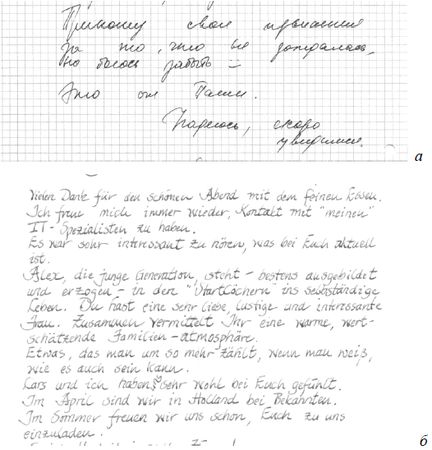 Приношу свои извинения
за то, что не дождалась,
но боюсь забыть –
Это от Тани.
Надеюсь, скоро
увидимся
а
Vielen Dank für den schönen Abend mit dem feinen Essen.
Ich freue mich immer wieder, Kontakt mit "meinen"
IT-Spezialisten zu haben.
Es war sehr interessant zu hören, was bei Euch aktuell
ist.
Alex, die junge Generation, steht - bestens ausgebildet
und erzogen - in den "Startlöchern" ins selbständige
Leben. Du hast eine sehr liebe, lustige und interessante
Frau. Zusammen vermittelt Ihr eine warme, wert-
schätzende Familien-atmosphäre.
Etwas, das man um so mehr zählt, wenn man weiß,
wie es auch sein kann.
Lars und ich haben sehr wohl bei Euch gefühlt.
Im April sind wir in Holland bei Bekannten.
Im Sommer freuen wir uns schon, Euch zu uns
einzuladen.
б